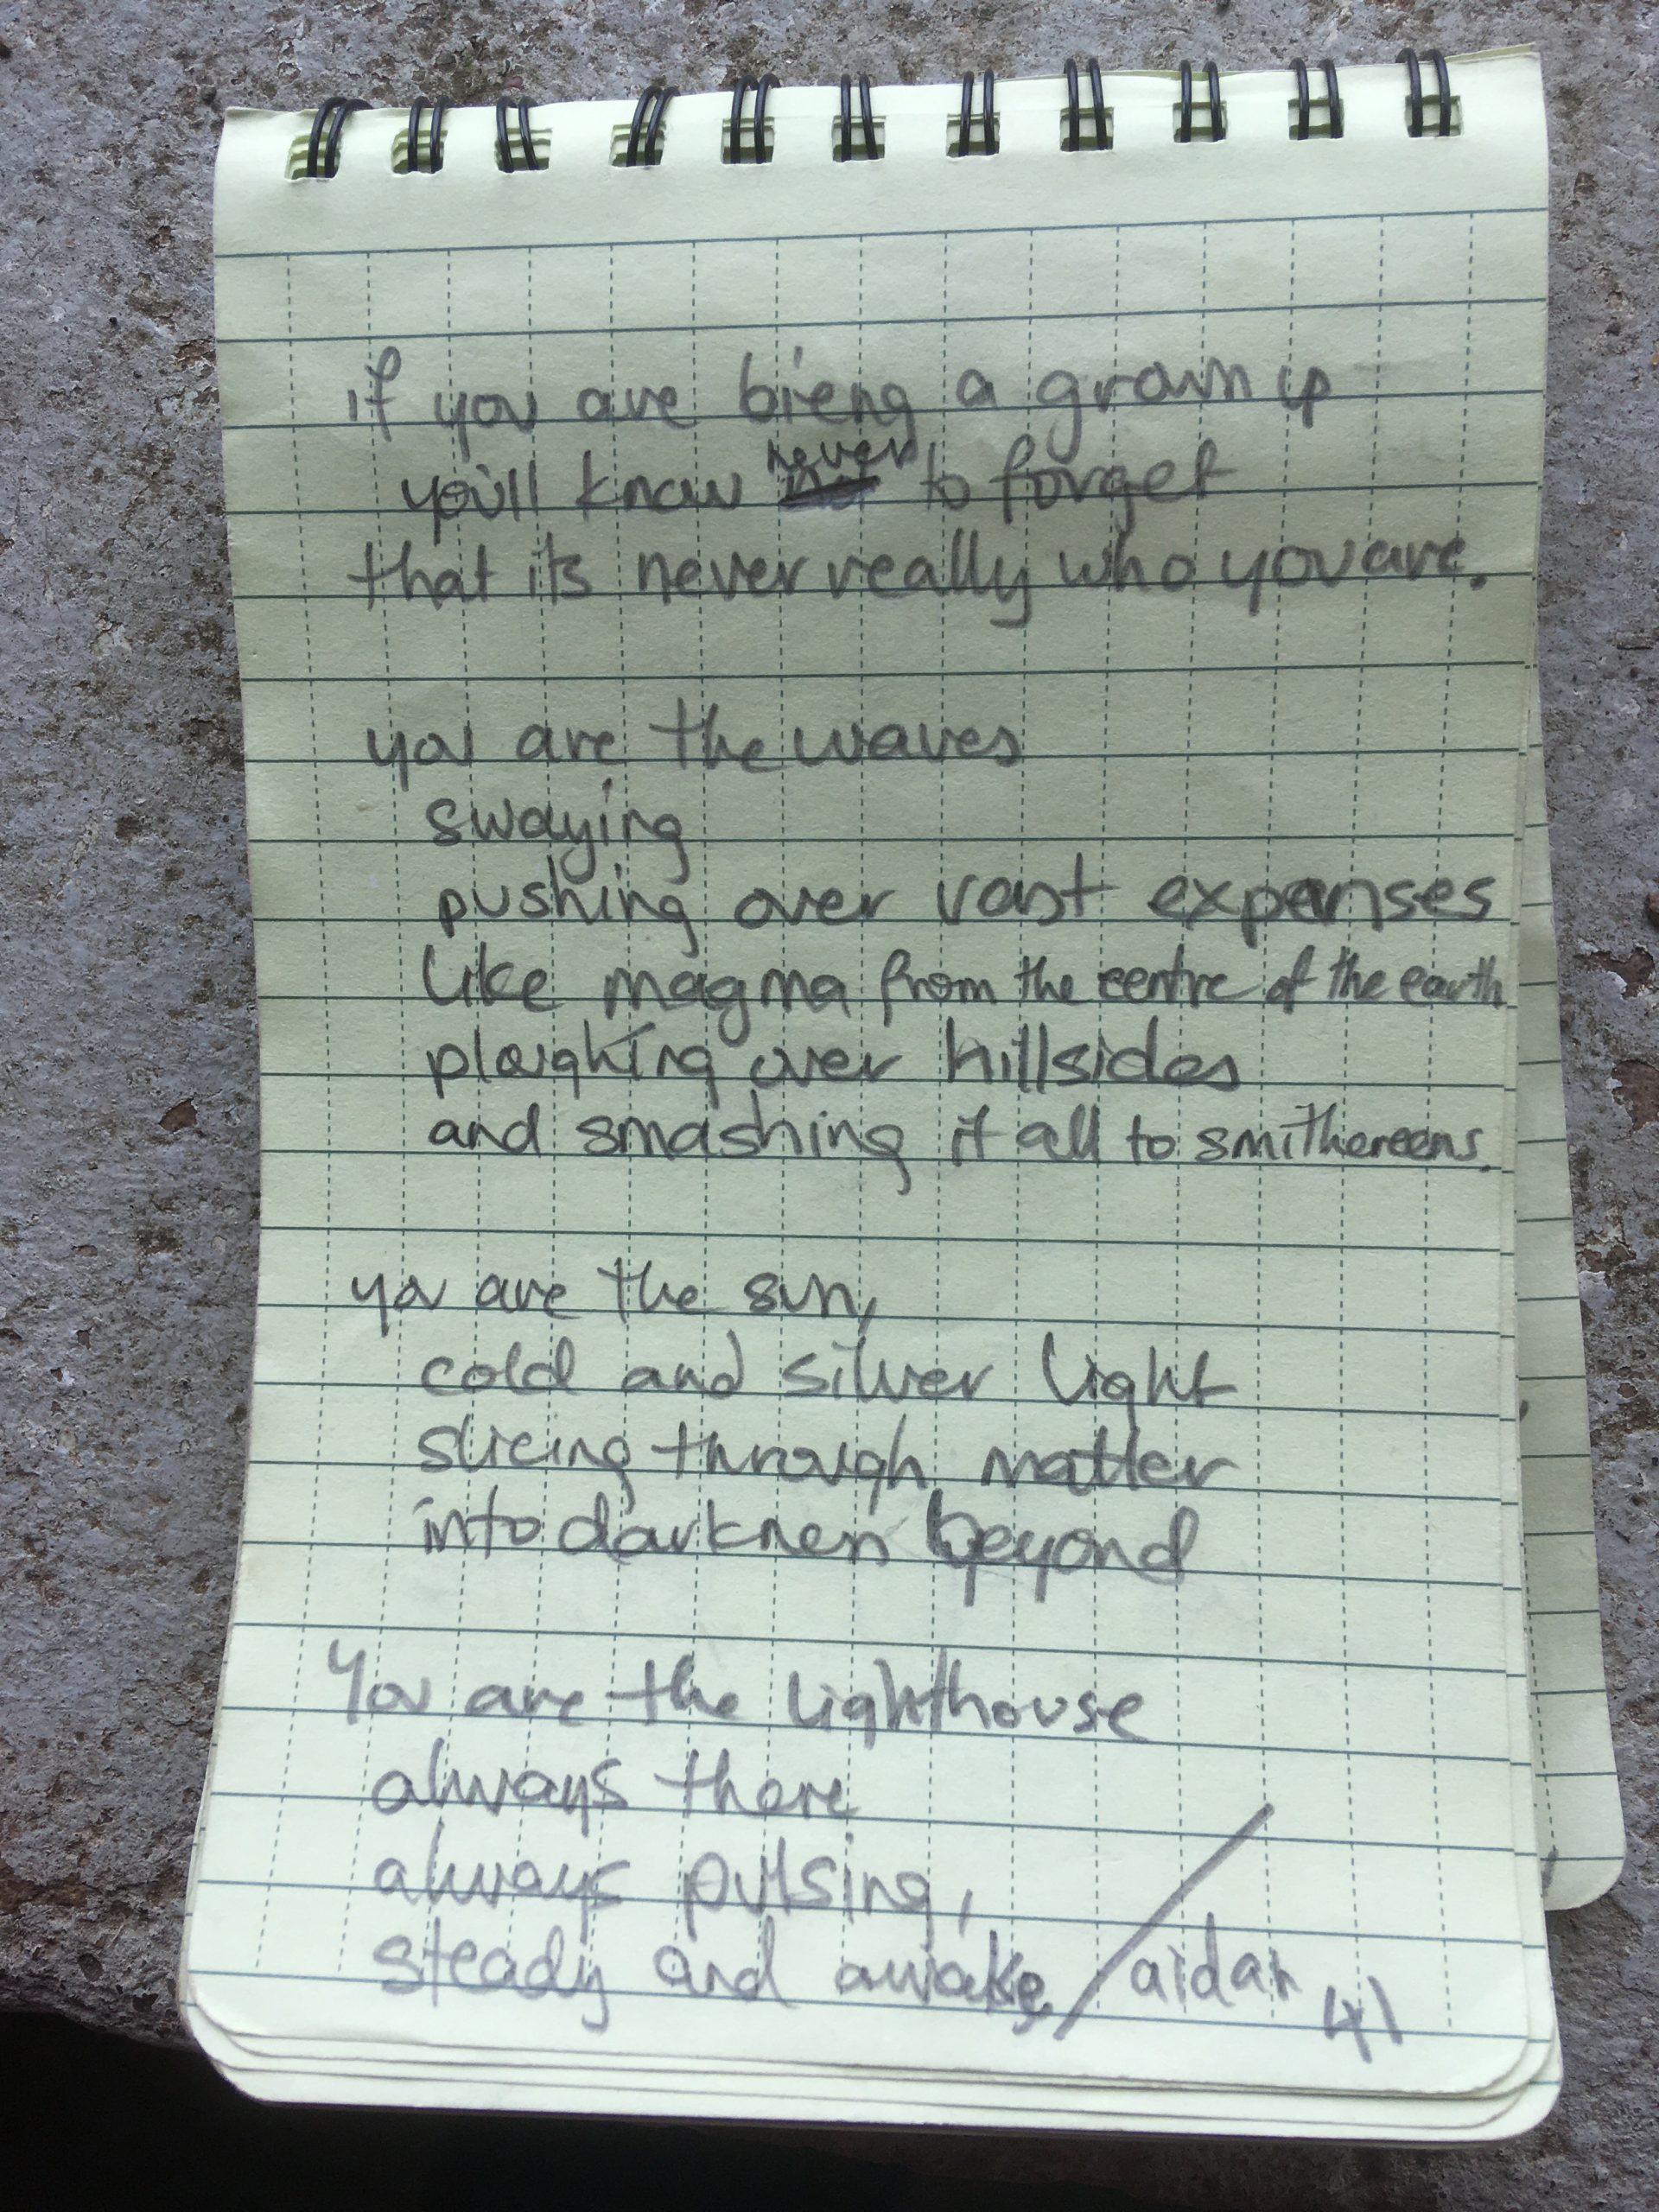 if you are bieng a grown up
you'll know never to forget
that its never really who you are.
you are the waves
swaying
pushing over vast expanses
like magma from the centre of the earth
ploughing over hillsides
and smashing it all to smithereens.
you are the sun,
cold and silver light
slicing through matter
into darkness beyond
You are the lighthouse
always there
always pulsing,
steady and awake / aidan 41